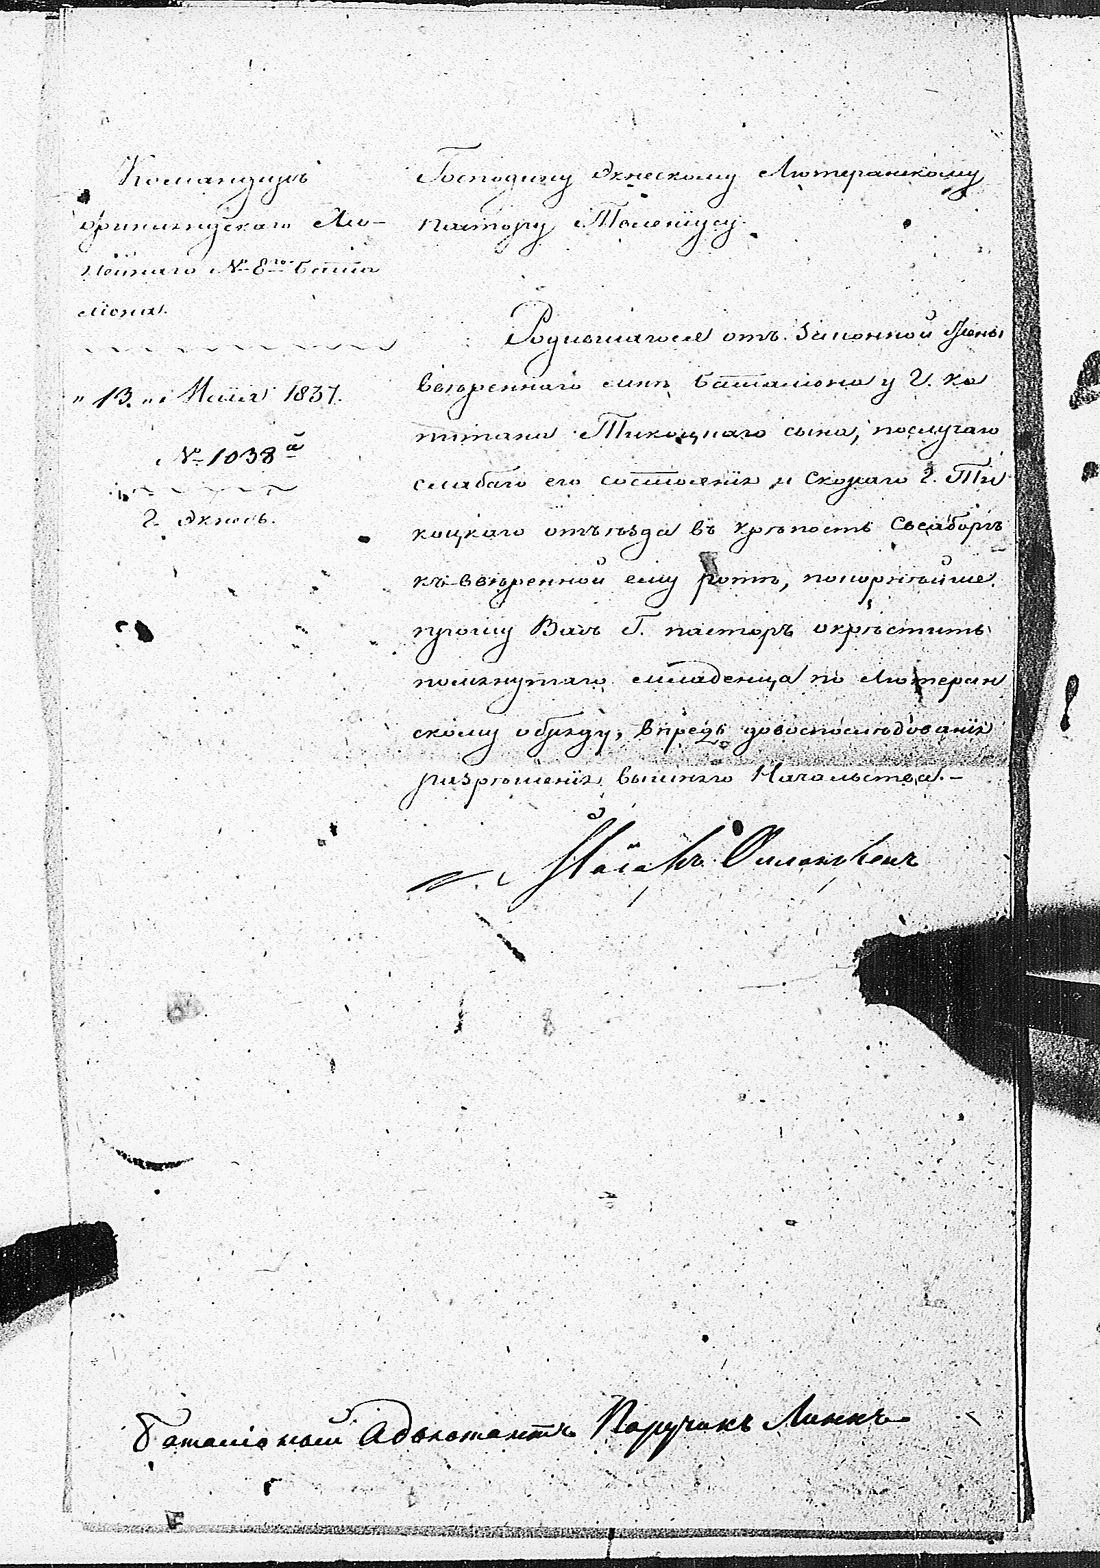 Командиръ
Финляндскаго Ли-
нейнаго № 8го Баттa
лiона.
„13„ Маiя 1837.
№ 1038й
г. Экнесъ.
Господину Экнескому Лютеранскому
пастору
Родившагося отъ законной жены
ввѣреннаго мнѣ баталiона у Г. ка
питана Тикоцкаго сына, послучаю
слабаго его состоянiя и скораго Г. Ти
коцкаго отъѣзда въ крѣпость Свеаборгъ
къ ввѣренной ему ротѣ, покорнѣйше
прошу Васъ Г. пасторъ окрѣстить
помянутаго младенца по Лютеран
скому обряду, впредь довоспослѣдованiя
разрѣшенiя вышняго Начальства.—
Баталiонный Адъютантъ Поручикъ Линкъ